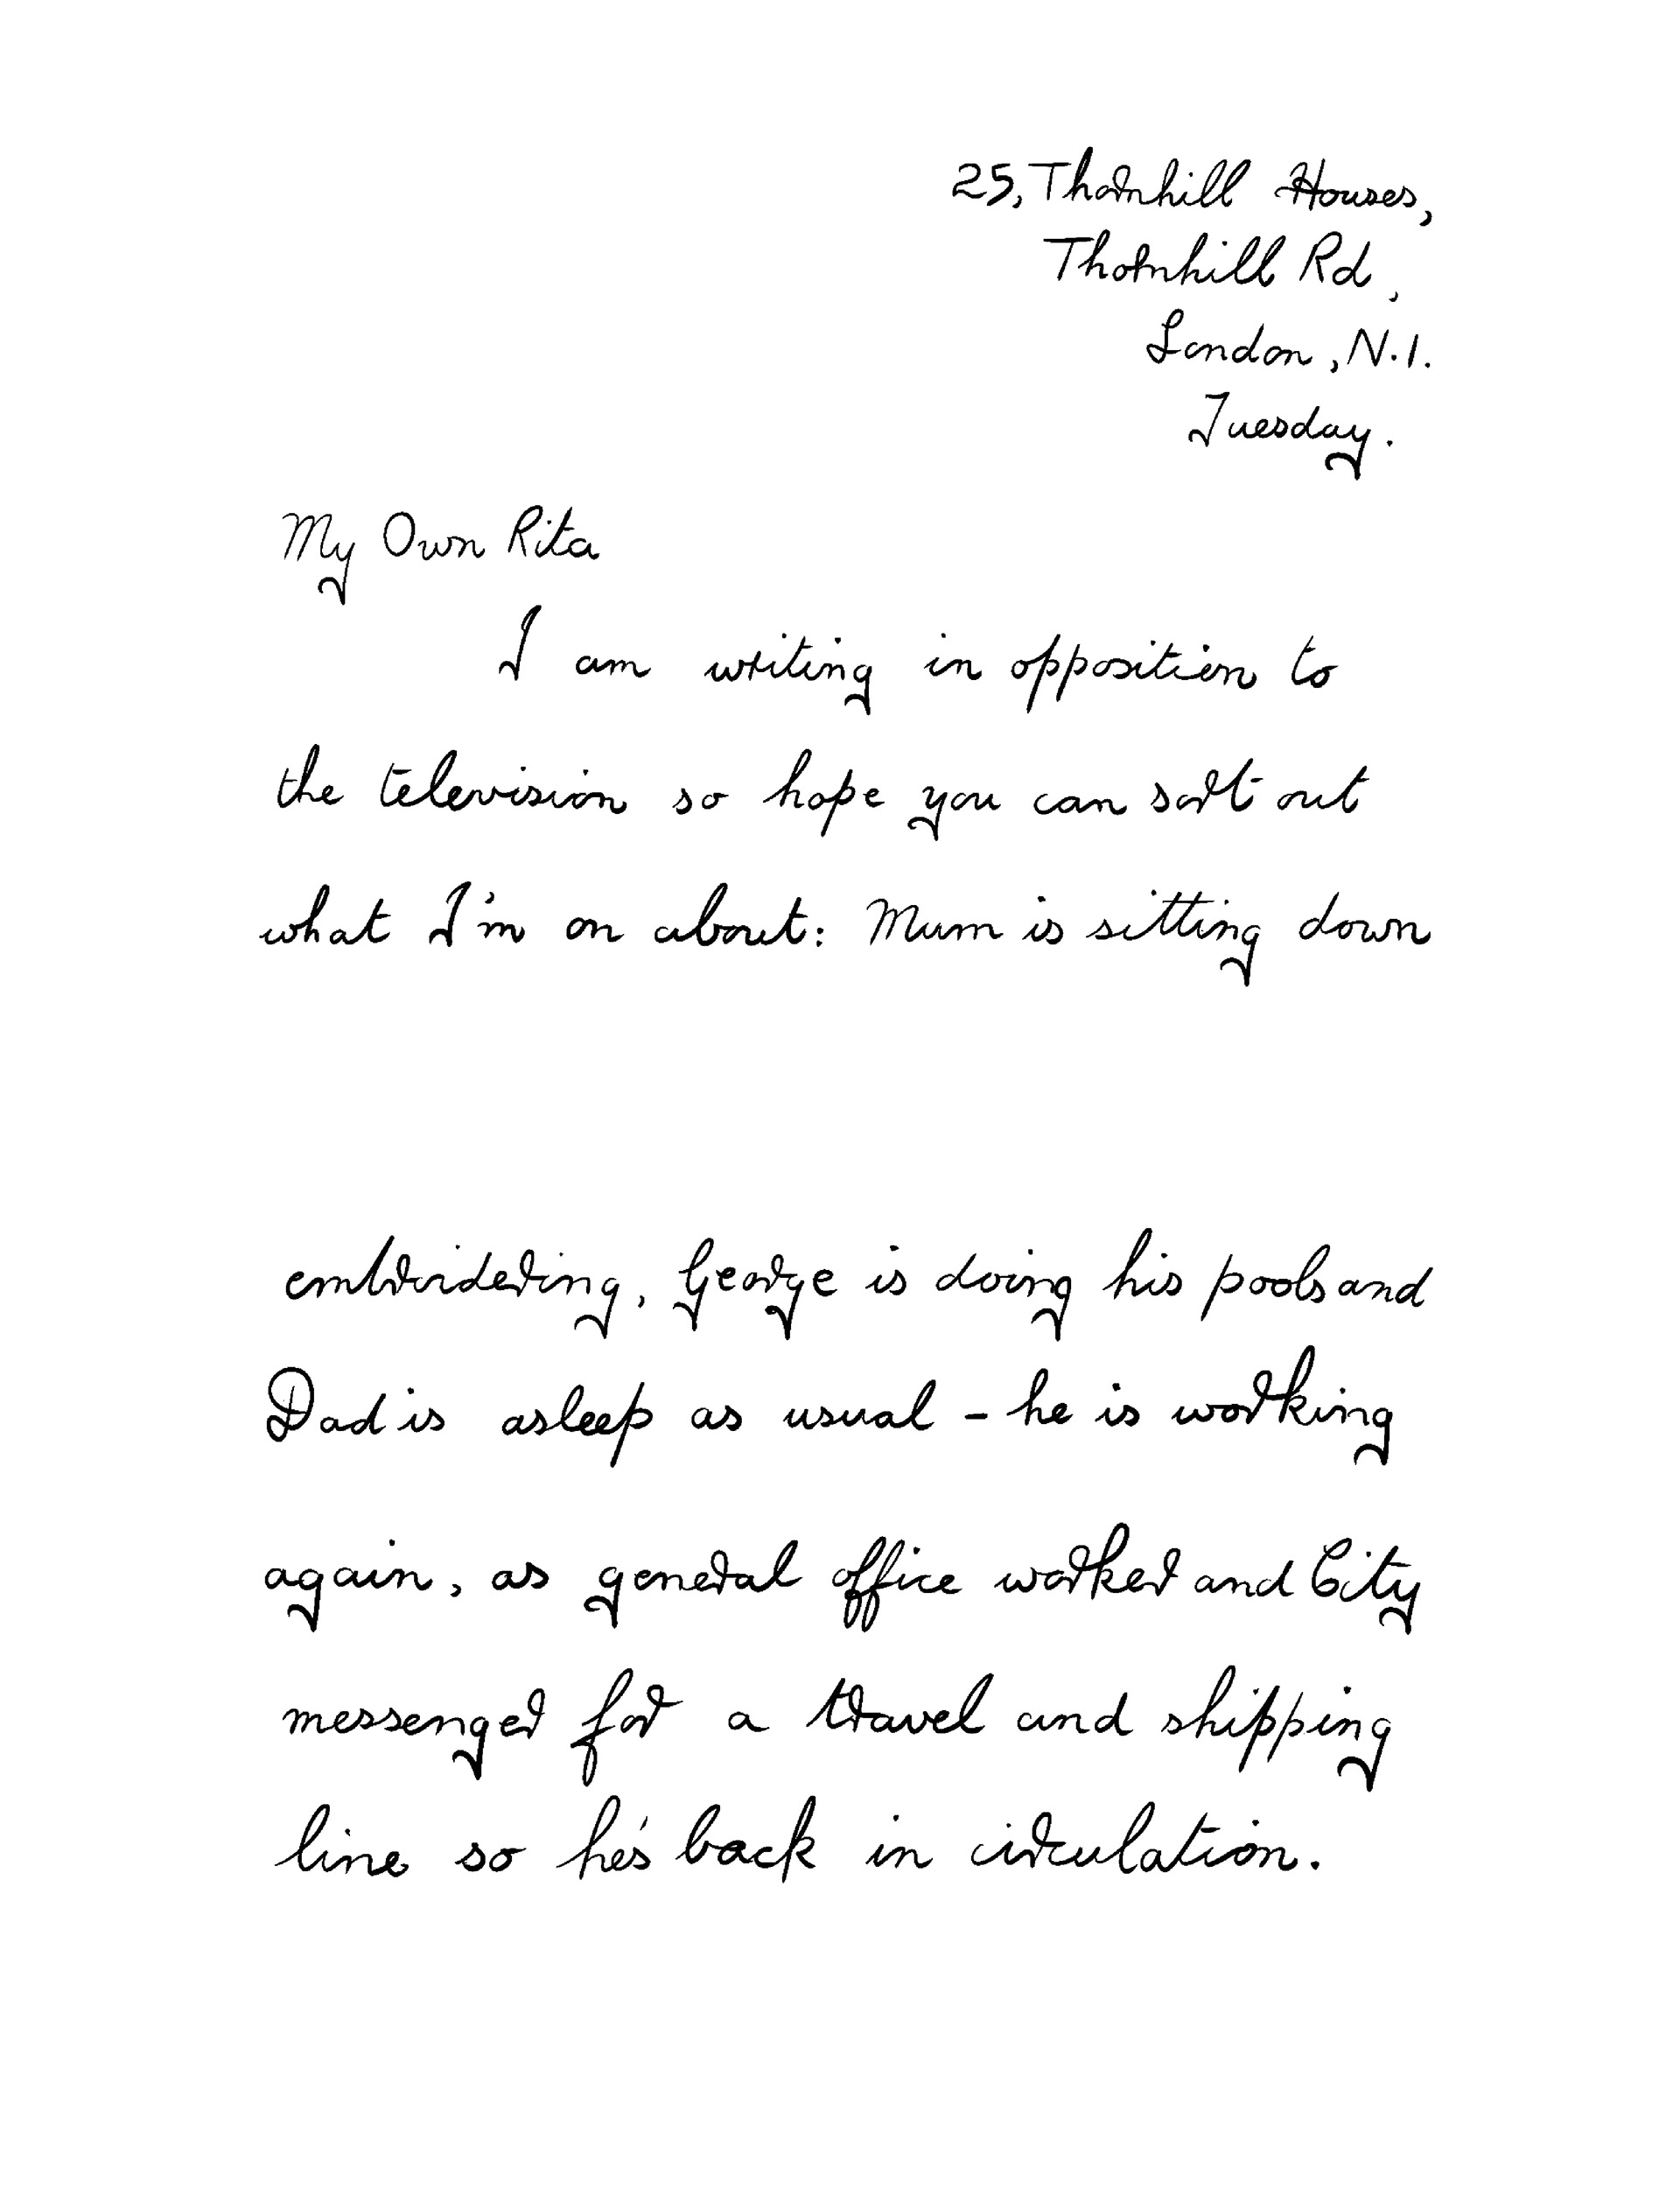 25, Thornhill Houses,
Thornhill Rd,
London, N.1.
Tuesday.
My Own Rita
I am writing in opposition to
the television so hope you can sort out
what I'm on about: Mum is sitting down
embroidering, George is doing his pools and
Dad is asleep as usual - he is working
again, as general office worker and City
messenger for a travel and shipping
line so he's back in circulation.